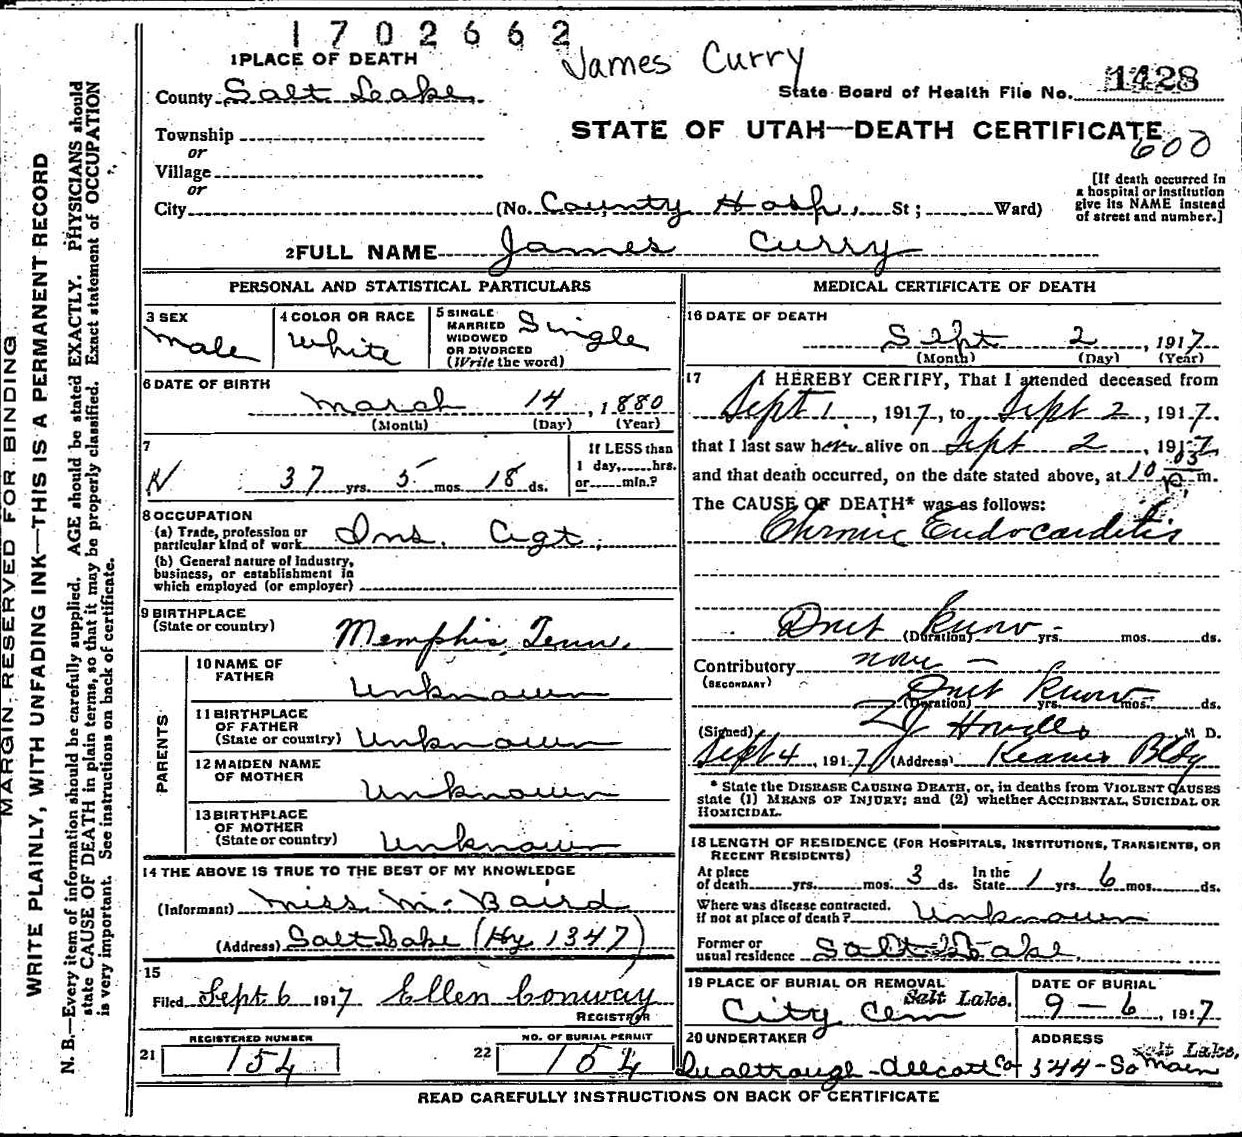 1702662
James Curry
1 PLACE OF DEATH
County Salt Lake
State Board of Health File No. 1428
Township
or
STATE OF UTAH—DEATH CERTIFICATE
600
Village
or
City (No. County Hosp. St; Ward)
[If death occurred in
a hospital or institution
give its NAME instead
of street and number.]
2 FULL NAME James Curry
PERSONAL AND STATISTICAL PARTICULARS
3 SEX
Male
4 COLOR OR RACE
White
5 SINGLE
MARRIED
WIDOWED
OR DIVORCED
(Write the word)
Single
6 DATE OF BIRTH
March 14, 1880
(Month) (Day) (Year)
7
37 yrs. 5 mos. 18 ds.
If LESS than
1 day, hrs.
or min.?
8 OCCUPATION
(a) Trade, profession or
particular kind of work Ins. Agt.
(b) General nature of industry,
business, or establishment in
which employed (or employer)
9 BIRTHPLACE
(State or country) Memphis, Tenn.
PARENTS
10 NAME OF
FATHER Unknown
11 BIRTHPLACE
OF FATHER
(State or country) Unknown
12 MAIDEN NAME
OF MOTHER Unknown
13 BIRTHPLACE
OF MOTHER
(State or country) Unknown
14 THE ABOVE IS TRUE TO THE BEST OF MY KNOWLEDGE
(Informant) Miss M. Baird
(Address) Salt Lake (Hy 1347)
15
Filed Sept 6 1917 Ellen Conway
REGISTRAR
REGISTERED NUMBER
21 154
NO. OF BURIAL PERMIT
22 154
MEDICAL CERTIFICATE OF DEATH
16 DATE OF DEATH
Sept 2, 1917
(Month) (Day) (Year)
17 I HEREBY CERTIFY, That I attended deceased from
Sept 1, 1917, to Sept 2, 1917.
that I last saw him alive on Sept 2, 1917
and that death occurred, on the date stated above, at 10 05 P. m.
The CAUSE OF DEATH* was as follows:
Chronic Endocarditis
Dont know
(Duration) yrs. mos. ds.
Contributory none
(SECONDARY)
Dont know
(Duration) yrs. mos. ds.
(Signed) Howells M D.
Sept 4, 1917 (Address) Kearns Bldg
* State the DISEASE CAUSING DEATH, or, in deaths from VIOLENT CAUSES
state (1) MEANS OF INJURY; and (2) whether ACCIDENTAL, SUICIDAL OR
HOMICIDAL.
18 LENGTH OF RESIDENCE (FOR HOSPITALS, INSTITUTIONS, TRANSIENTS, OR
RECENT RESIDENTS)
At place
of death yrs. mos. 3 ds.
In the
State 1 yrs 6 mos. ds.
Where was disease contracted.
if not at place of death? Unknown
Former or
usual residence Salt Lake
19 PLACE OF BURIAL OR REMOVAL
City Cem Salt Lake.
DATE OF BURIAL
9-6, 1917
20 UNDERTAKER
ADDRESS
344-So Main Salt Lake,
READ CAREFULLY INSTRUCTIONS ON BACK OF CERTIFICATE
MARGIN RESERVED FOR BINDING
WRITE PLAINLY, WITH UNFADING INK—THIS IS A PERMANENT RECORD
N. B.—Every item of information should be carefully supplied. AGE should be stated EXACTLY. PHYSICIANS should
state CAUSE OF DEATH in plain terms, so that it may be properly classified. Exact statement of OCCUPATION
is very important. See instructions on back of certificate.